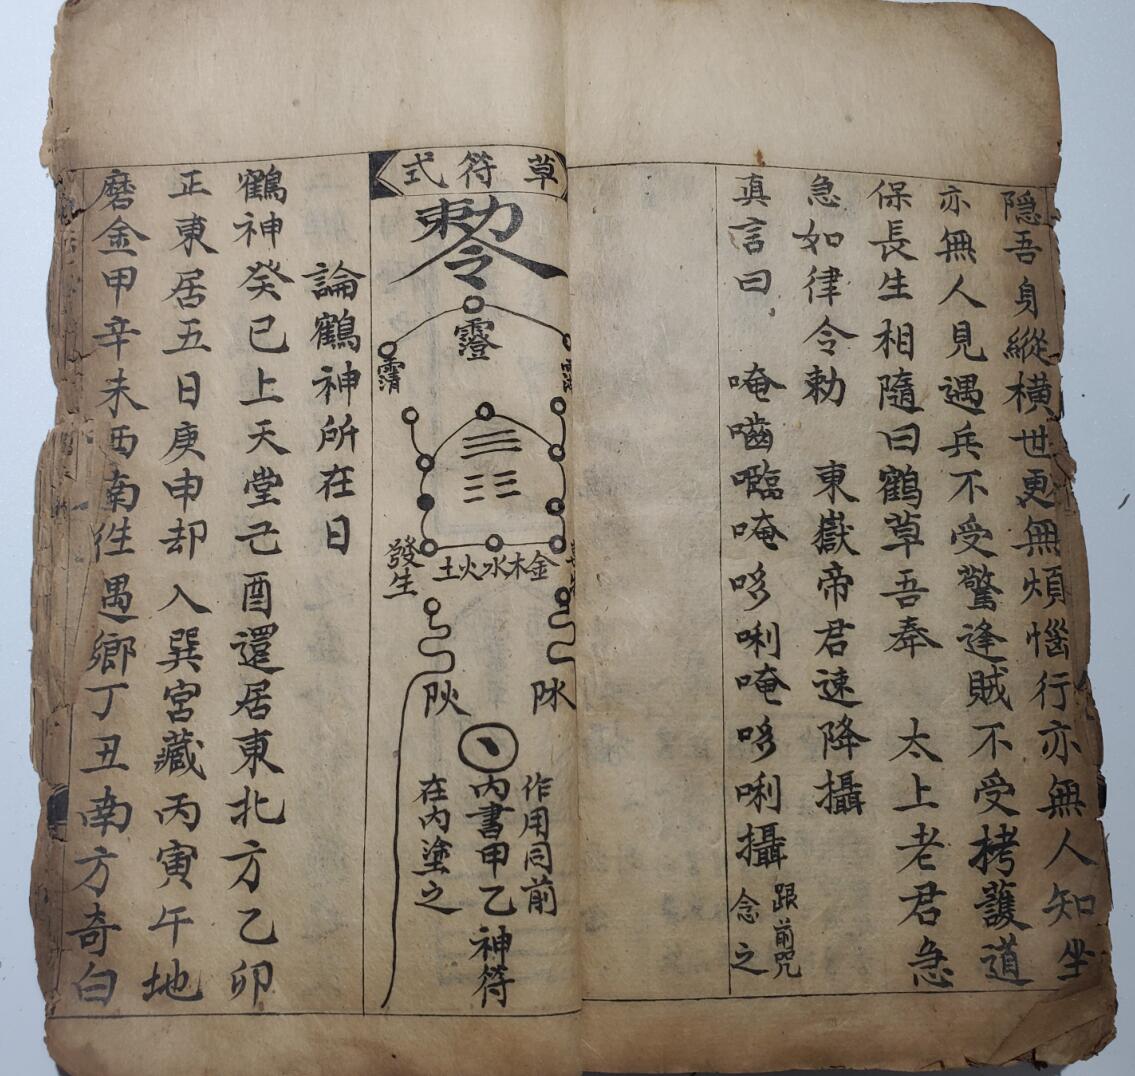 隱吾身縱橫世更無煩惱行亦無人知坐
亦無人見遇兵不受驚逢賊不受拷護道
保長生相隨曰鶴草吾奉 太上老君急
急如律令勅 東嶽帝君速降攝
真言曰 唵嚙㘕唵哆唎唵哆唎攝
跟前咒
念之
草符式
勅令
霐澄
清
金木水火土
發生
作用同前
內書甲乙神符
在內塗之
論鶴神所在日
鶴神癸巳上天堂己酉還居東北方乙卯
正東居五日庚申却入巽宮藏丙寅午地
磨金甲辛未西南徃遇鄉丁丑南方奇白